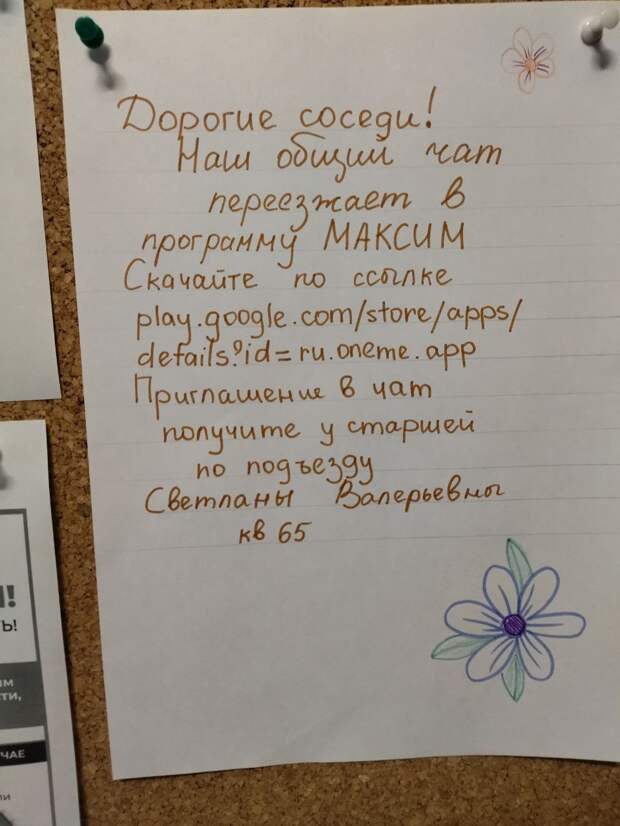 Дорогие соседи!
Наш общий чат
переезжает в
программу МАКСИМ
Скачайте по ссылке
play.google.com/store/apps/
details?id=ru.oneme.app
Приглашение в чат
получите у старшей
по подъезду
Светланы Валерьевны
кв 65
!
Ь!
ЫМ
ТИ,
ЧАЕ
ли